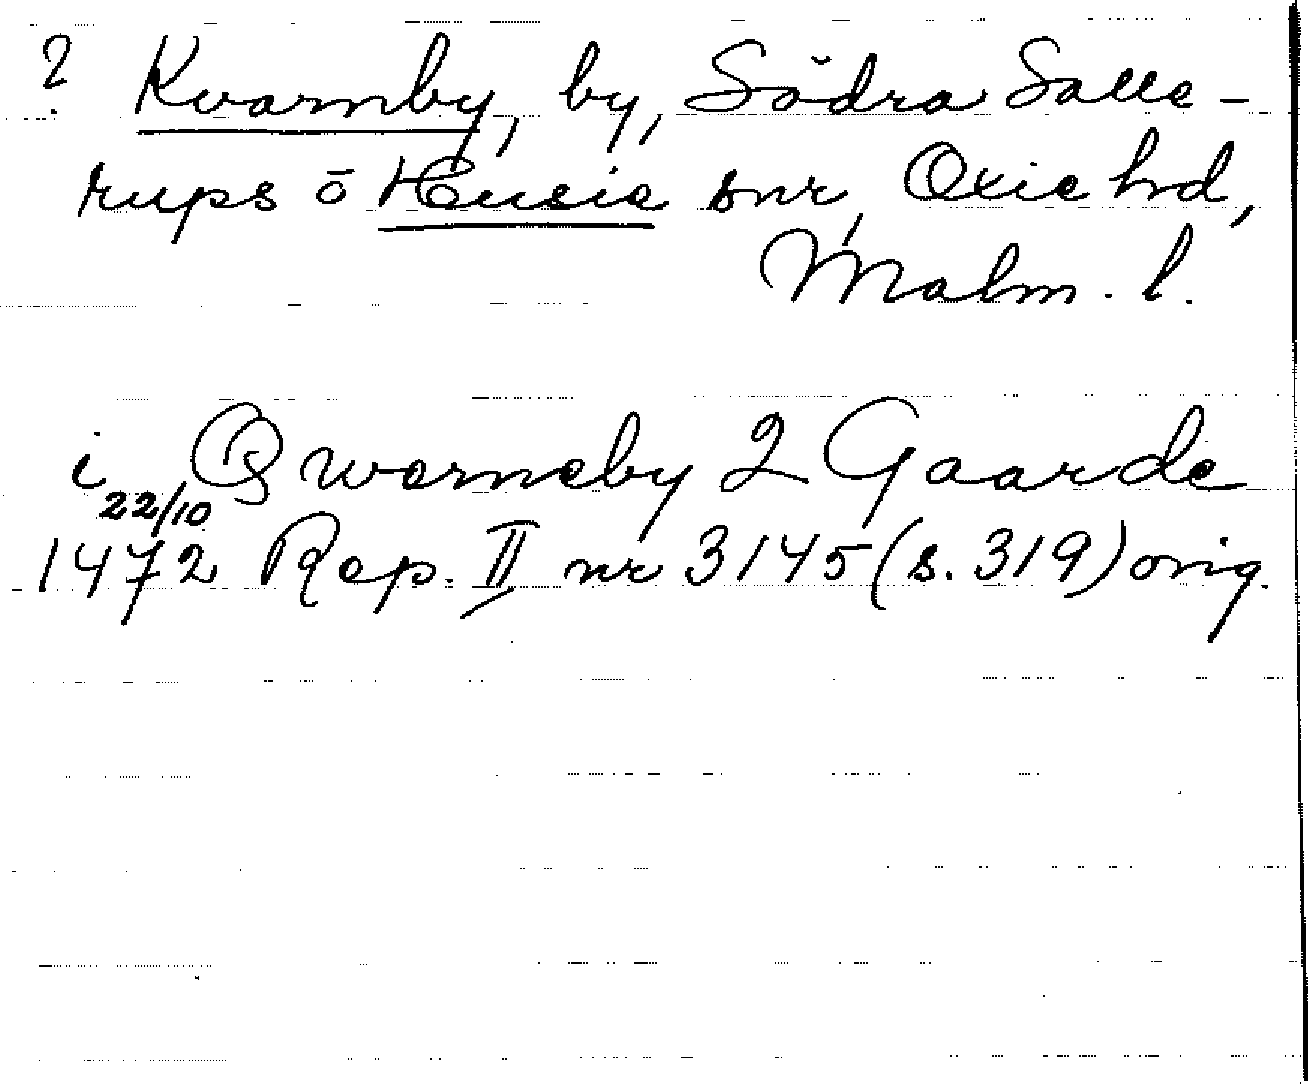 ? Kvarnby, by, Södra Salle-
rups o Husie snr, Oxie hd,
Malm. l.
i Qwerneby 2 Gaarde
22/10
1472 Rep. II nr 3145 (s. 319) orig.